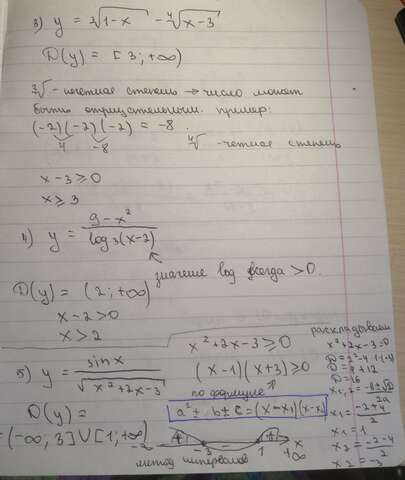 3) y = ∛(1-x) - ∜(x-3)
D(y) = [3; +∞)
∛ - нечетная степень → число может
быть отрицательным. пример:
(-2)(-2)(-2) = -8.
4 -8
∜ - четная степень
x-3≥0
x≥3
4) y = (9-x²)/(log₃(x-2))
значение log всегда >0.
D(y) = (2; +∞)
x-2>0
x>2
5) y = sinx/√(x²+2x-3)
x²+2x-3≥0
(x-1)(x+3)≥0
по формуле
a² ± b ± c = (x-x₁)(x-x₂)
D(y) =
=(-∞; 3]∪[1; +∞)
-∞ + -3 1 + x +∞
метод интервалов
раскладываем
x²+2x-3=0
D=2²-4·1·(-3)
D=4+12
D=16
x₁,₂= (-b±√D)/2a
x₁= (-2+4)/2
x₁=1
x₂= (-2-4)/2
x₂=-3